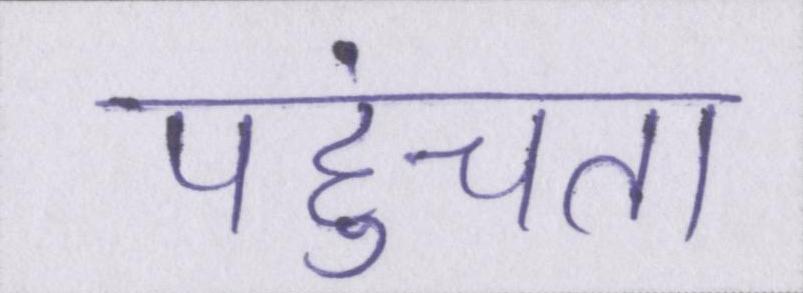 पहुंचता